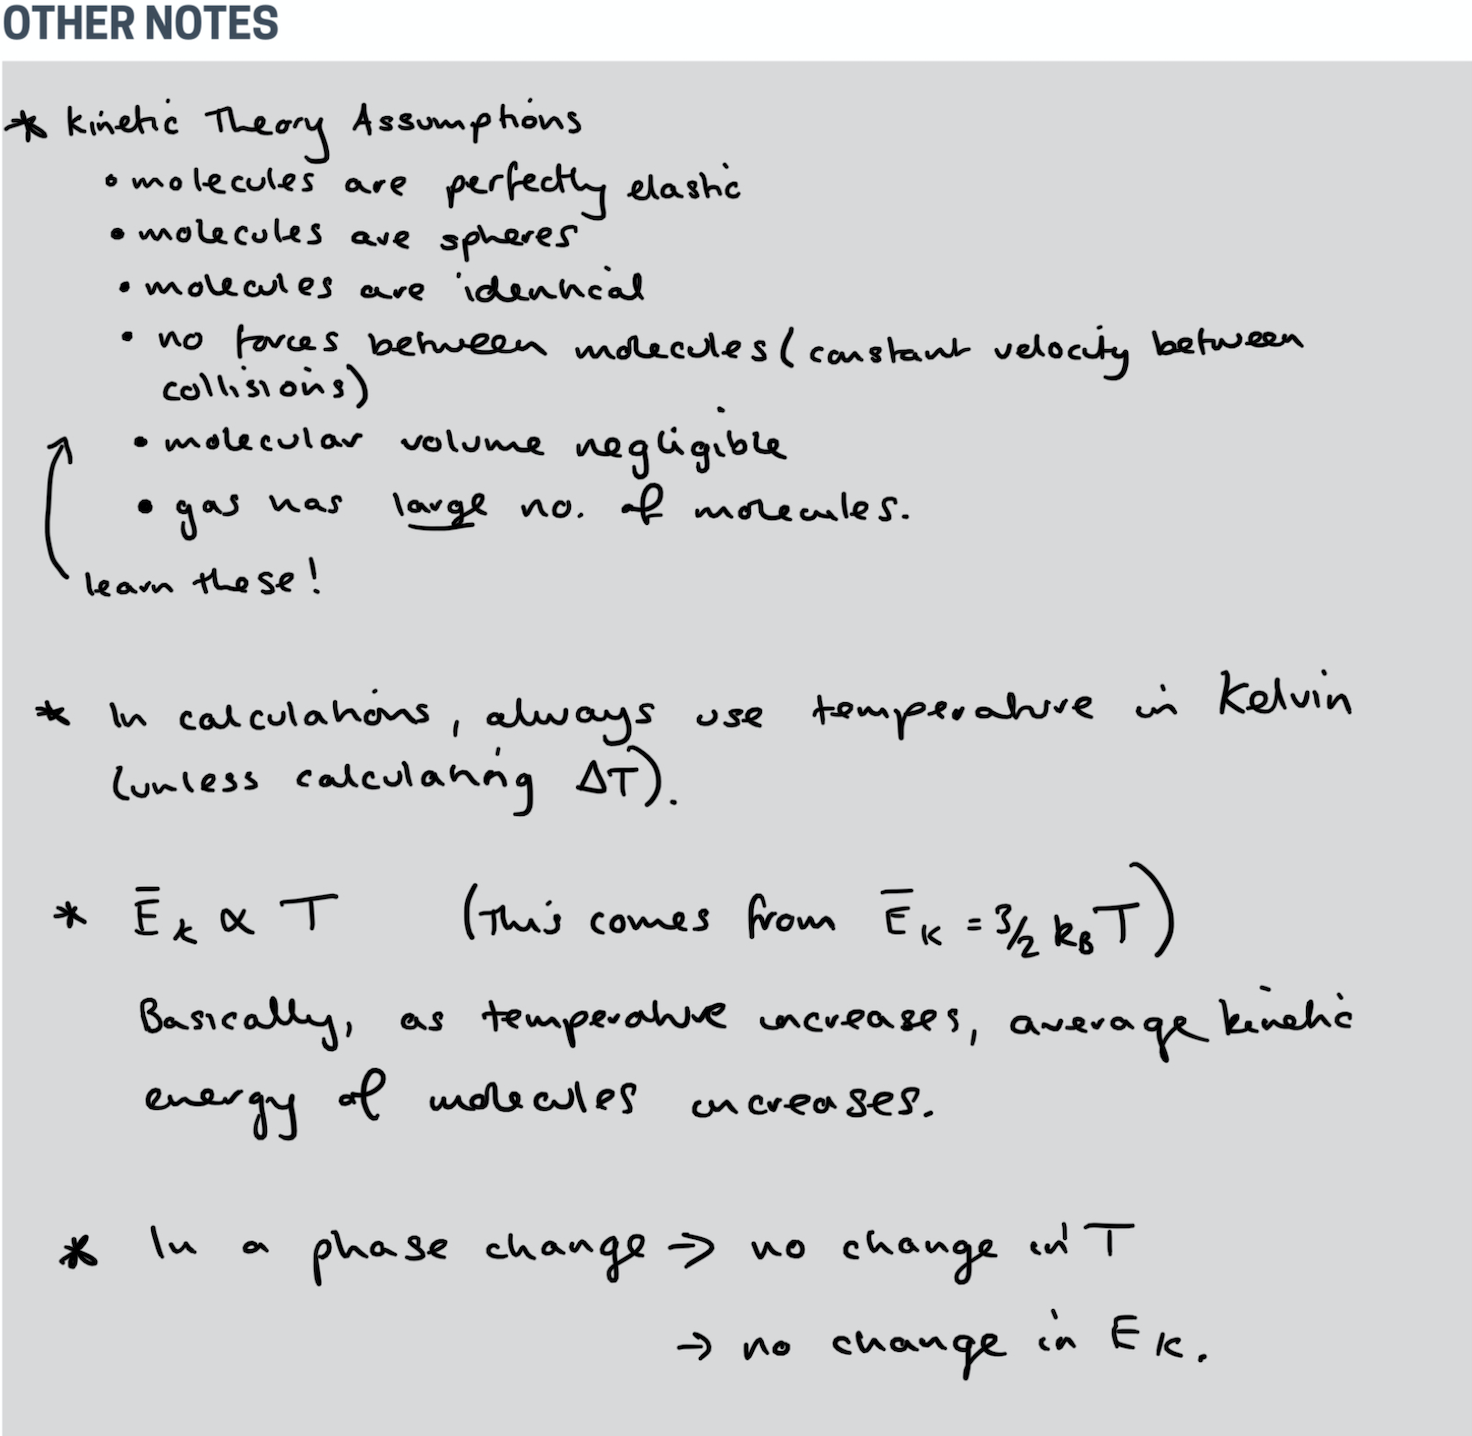 OTHER NOTES
* Kinetic Theory Assumptions
• molecules are perfectly elastic
• molecules are spheres
• molecules are identical
• no forces between molecules (constant velocity between
collisions)
• molecular volume negligible
• gas has large no. of molecules.
learn these!
* In calculations, always use temperature in Kelvin
(unless calculating ΔT).
* Ē_k ∝ T (This comes from Ē_K = 3/2 k_B T)
Basically, as temperature increases, average kinetic
energy of molecules increases.
* In a phase change → no change in T
→ no change in E_K.